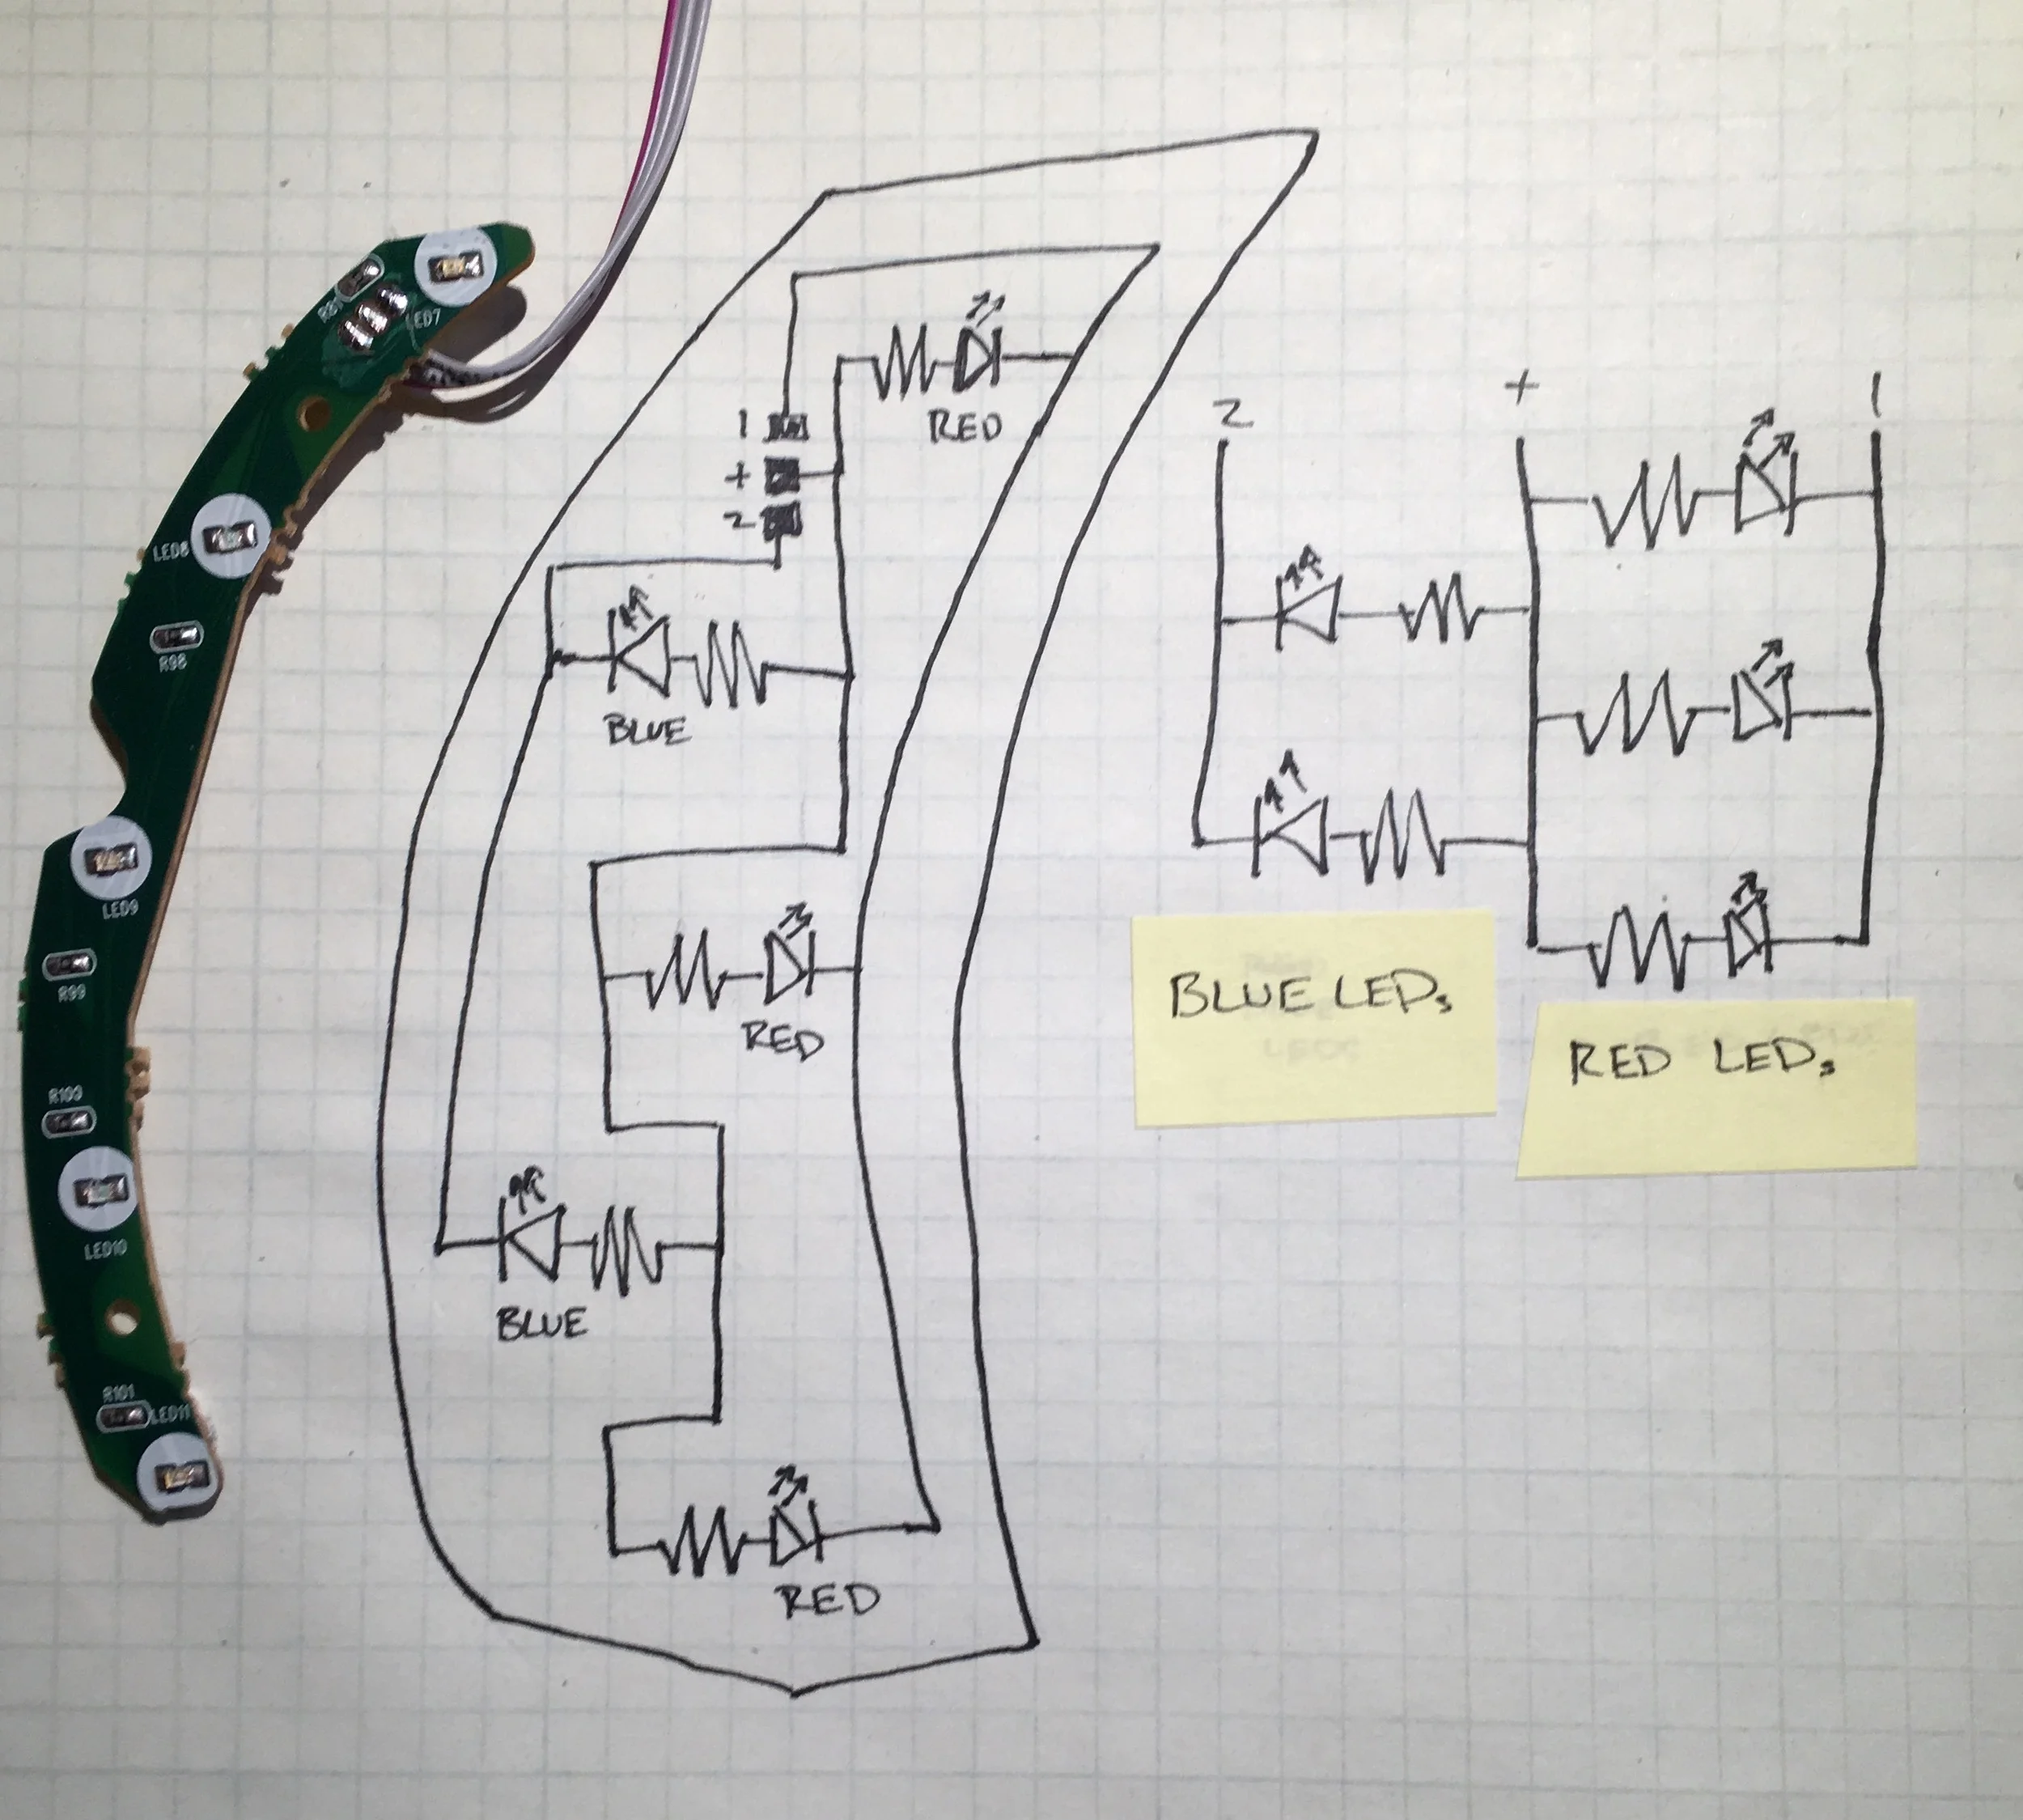 LED7
LED8
R98
LED9
R99
R100
LED10
R101
LED11
1
+
2
RED
BLUE
RED
BLUE
RED
2
+
1
BLUE LEDs
RED LEDs